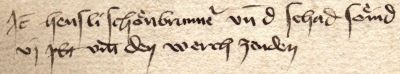 It hensli schönbrunner vn d schad söind
vj pht vm̄ den werch zenden